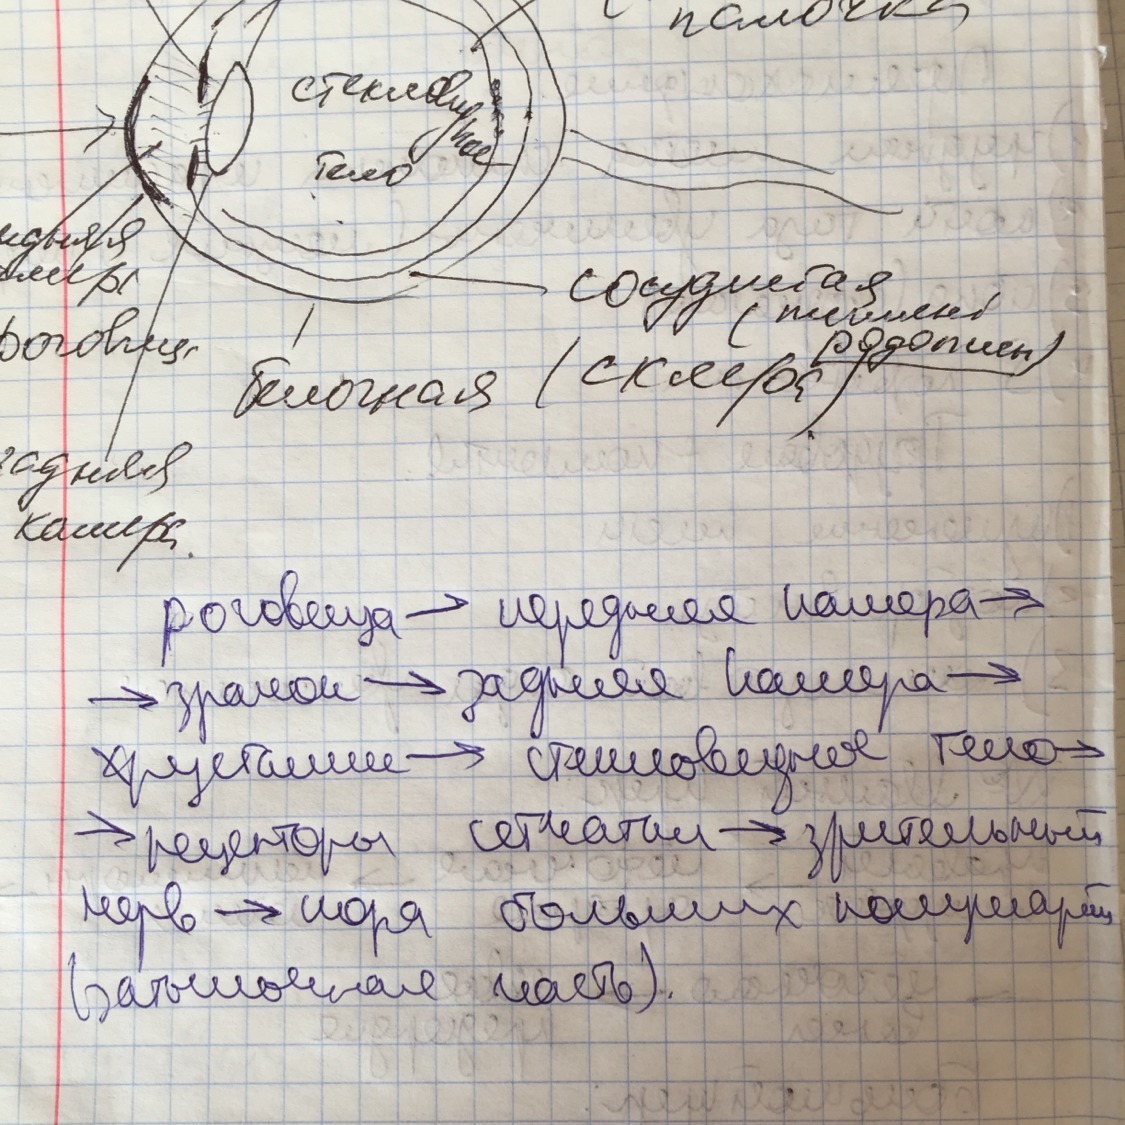 палочка
стекловидное
тело
роговица
сосудистая
(пигмент
родопсин)
Белочная (склера)
задняя
камера
роговица → передняя камера →
→ зрачок → задняя камера →
хрусталик → стекловидное тело →
→ рецепторы сетчатки → зрительный
нерв → кора больших полушарий
(затылочная часть).